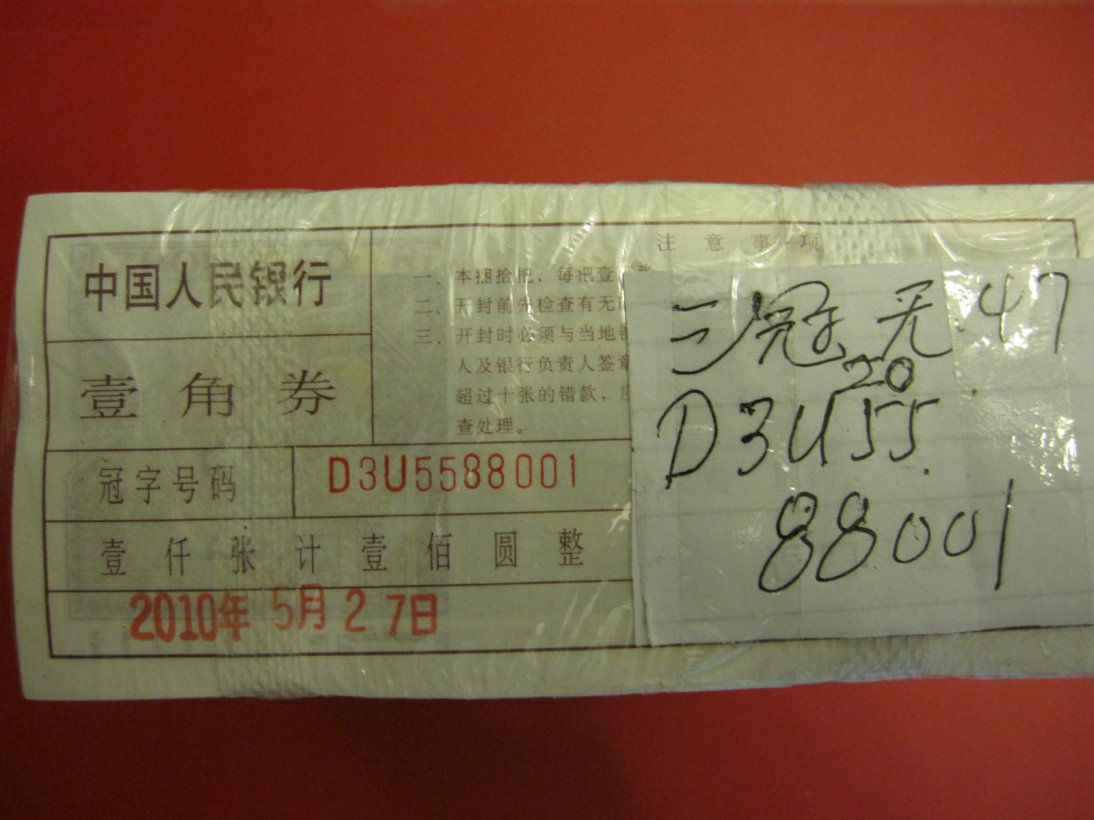 中国人民银行
壹角券
冠字号码 D3U5588001
壹仟张计壹佰圆整
2010年 5月 2 7日
注意事项
一、本捆拾把，每把壹
二、开封前先检查有无
三、开封时必须与当地
人及银行负责人签章
超过十张的错款，
查处理。
三冠无.47
20
D3U55
88001